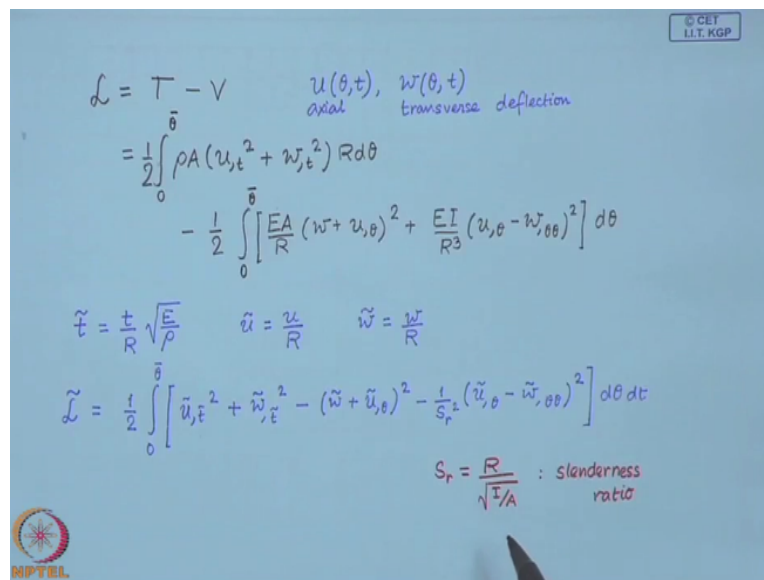 © CET
I.I.T. KGP
ℒ = T − V u(θ,t), w(θ,t)
axial transverse deflection
= 1/2 ∫₀^θ̄ ρA (u,t² + w,t²) R dθ
− 1/2 ∫₀^θ̄ [EA/R (w + u,θ)² + EI/R³ (u,θ − w,θθ)²] dθ
t̃ = t/R √(E/ρ) ũ = u/R w̃ = w/R
ℒ̃ = 1/2 ∫₀^θ̄ [ũ,t̃² + w̃,t̃² − (w̃ + ũ,θ)² − 1/Sr² (ũ,θ − w̃,θθ)²] dθ dt
Sr = R/√(I/A) : slenderness
ratio
NPTEL